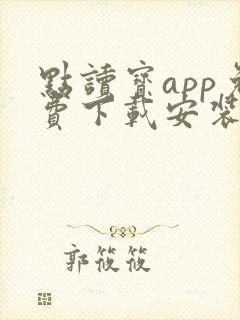 點讀寶app免
費下載安裝
郭筱筱